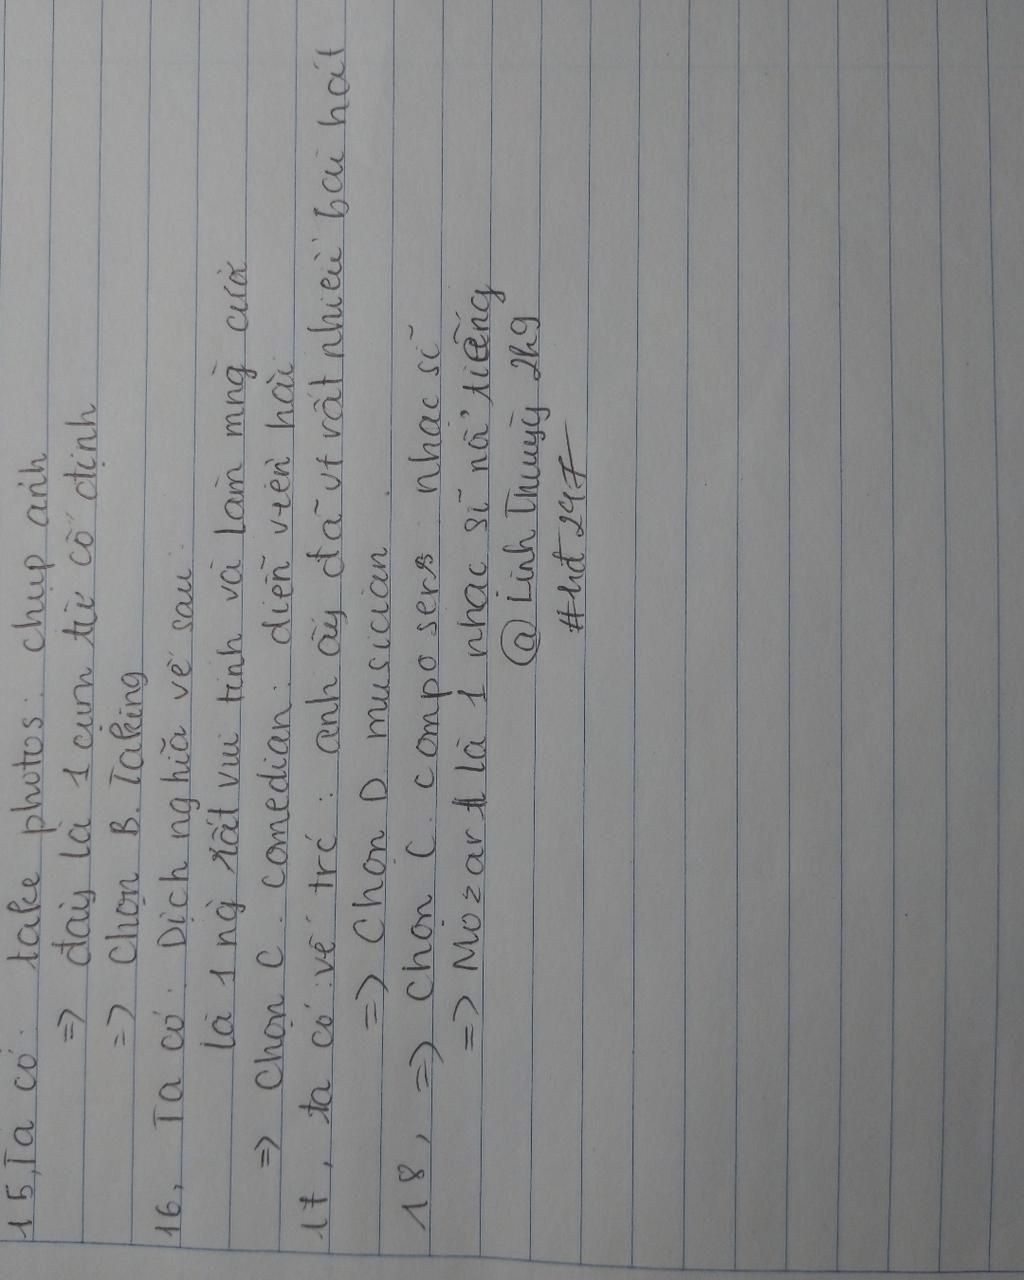 15, Ta có: take photos: chụp ảnh
=> đây là 1 cụm từ cố định
=> Chọn B. Taking
16, Ta có: Dịch nghĩa vế sau:
là 1 ng rất vui tính và làm mng cười
=> Chọn C. comedian: diễn viên hài
17, ta có: vế trc: anh ấy đã vt rất nhiều bài hát
=> Chọn D musician.
18, => Chọn C. composers nhạc sĩ
=> Mozart là 1 nhạc sĩ nổi tiếng
@Linh Thuỳ 2k9
#hđ247